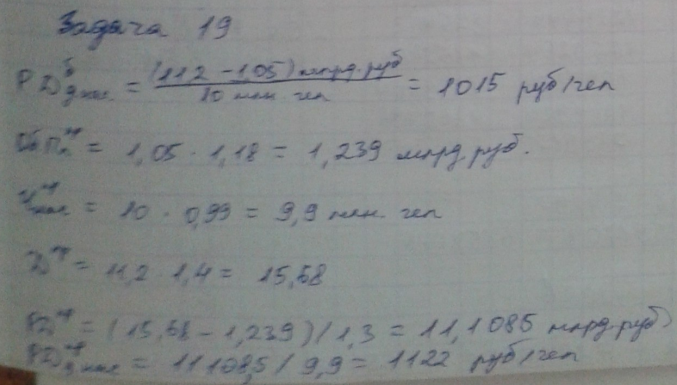 Задача 19
РД^б_д нас. = (11,2 - 1,05) млрд. руб / 10 млн. чел = 1015 руб/чел
Об П^пр_п = 1,05 · 1,18 = 1,239 млрд. руб.
Ч^пр_нас = 10 · 0,99 = 9,9 млн. чел
Д^пр = 11,2 · 1,4 = 15,68
РД^пр = (15,68 - 1,239) / 1,3 = 11,1085 млрд. руб)
РД^пр_д нас = 11108,5 / 9,9 = 1122 руб/чел